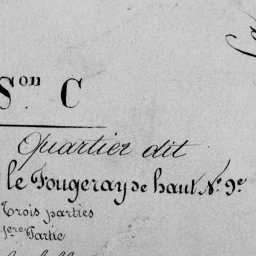 Son C
Quartier dit
le Fougeray de haut No 9e
Trois parties
1ere Partie